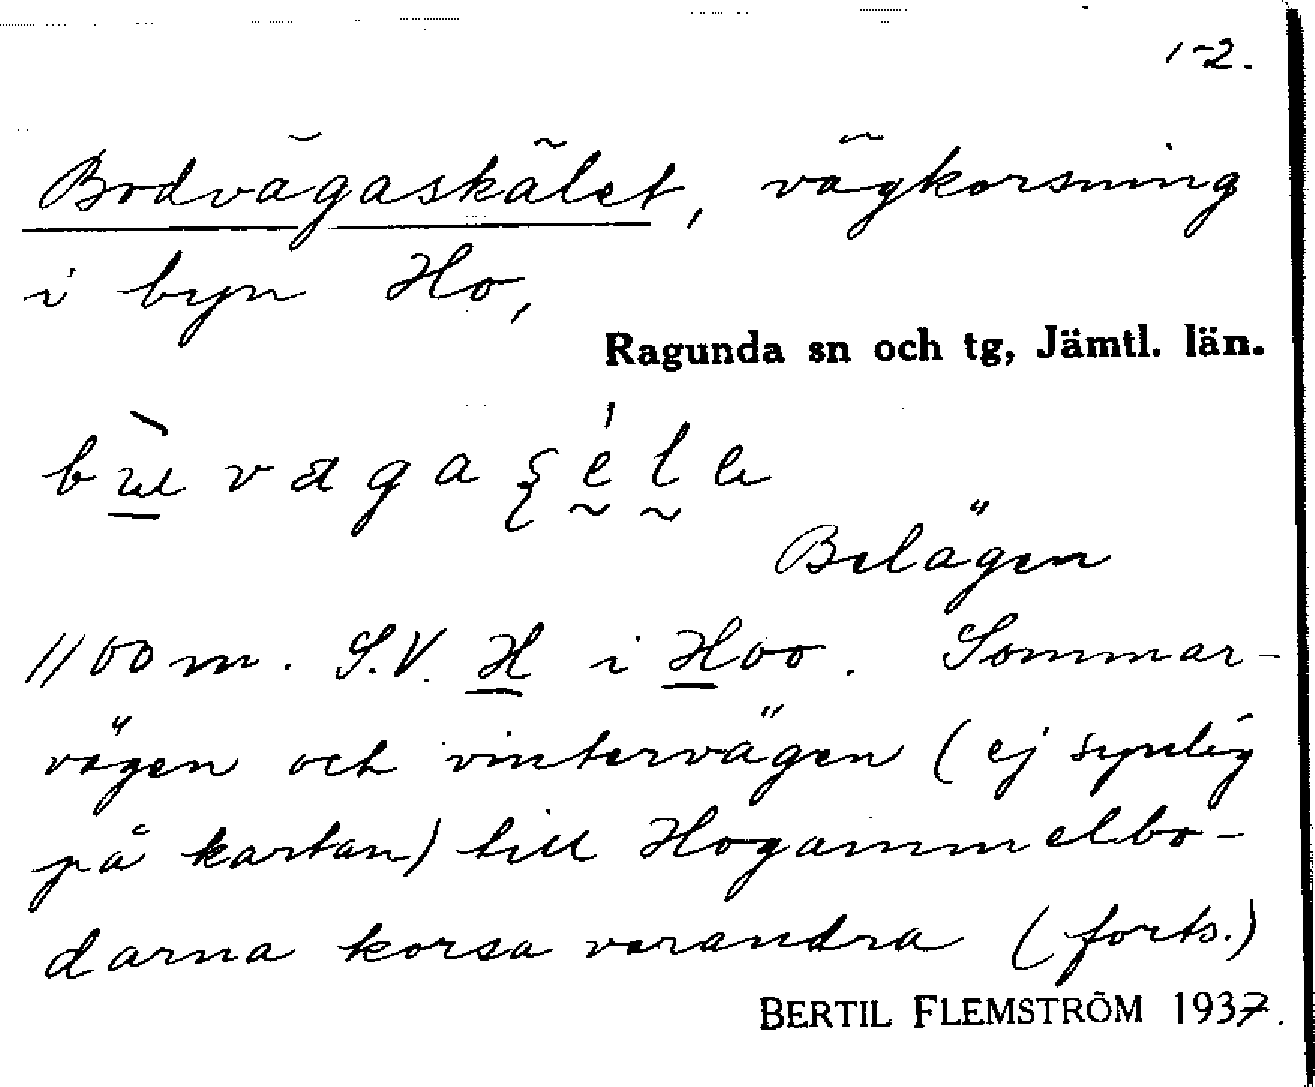 1-2.
Bodvägaskälet, vägkorsning
i byn Ho,
Ragunda sn och tg, Jämtl. län.
Belägen
1100 m. S.V. H i Hoo. Sommar-
vägen och vintervägen (ej synlig
på kartan) till Hogammelbo-
darna korsa varandra (forts.)
BERTIL FLEMSTRÖM 1937.